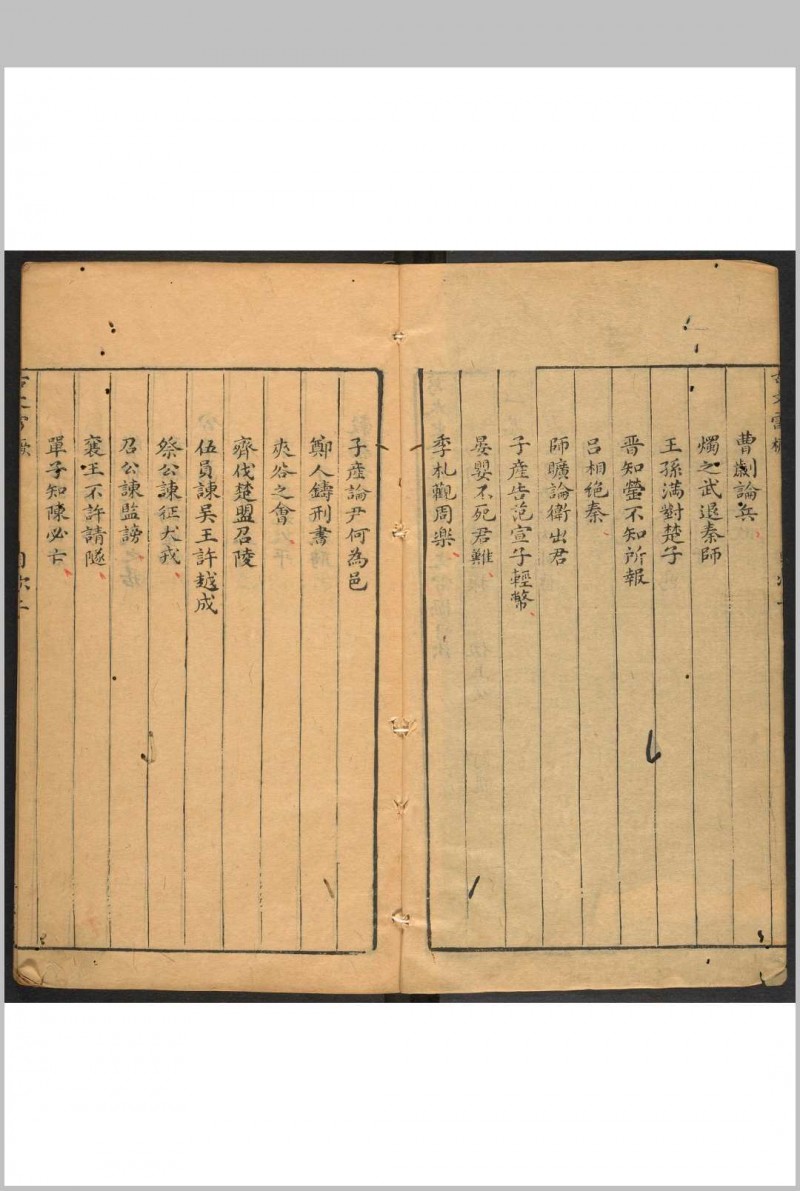 曹劌論兵
燭之武退秦師
王孫滿對楚子
晋知罃不知所報
呂相絶秦
師曠論衛出君
子産告范宣子輕幣
晏嬰不死君難
季札觀周樂
子産論尹何為邑
鄭人鑄刑書
夾谷之會
齊伐楚盟召陵
伍員諫吴王許越成
祭公諫征犬戎
召公諫監謗
襄王不許請隧
單子知陳必亡